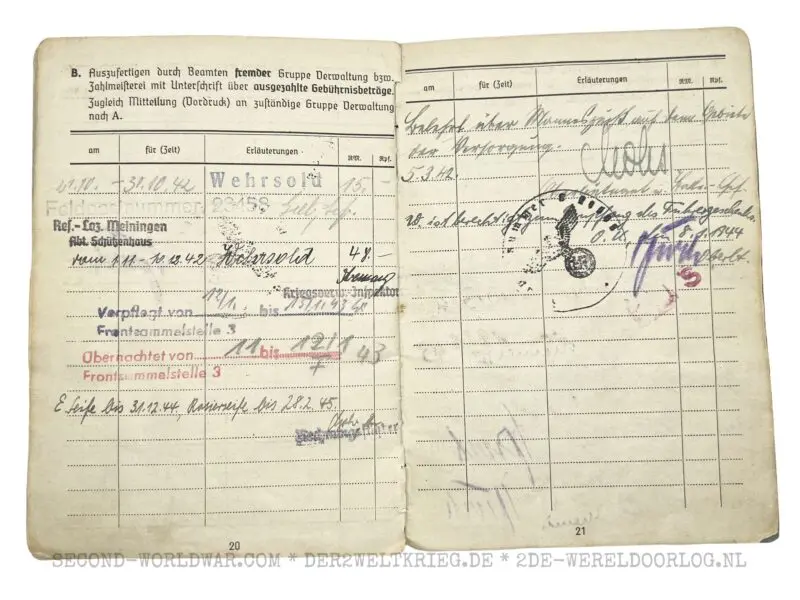 B. Auszufertigen durch Beamten fremder Gruppe Verwaltung bzw.
Zahlmeisterei mit Unterschrift über ausgezahlte Gebührnisbeträge.
Zugleich Mitteilung (Vordruck) an zuständige Gruppe Verwaltung
nach A.
am für (Zeit) Erläuterungen RM. Rpf.
21.10. – 31.10.42 Wehrsold 15,–
Feldpostnummer 23458
Res.-Laz. Meiningen
Abt. Schützenhaus
vom 1.11. - 10.12.42 Wehrsold 48.–
Kriegsverw.-Inspektor
Verpflegt von 12/1. bis 13/1.43
Frontsammelstelle 3
Übernachtet von 11 bis 12/1 43
Frontsammelstelle 3
E Seife bis 31.12.44, Rasierseife bis 28.2.45.
20
am für (Zeit) Erläuterungen RM. Rpf.
Belehrt über Manneszucht auf dem Gebiete
der Versorgung.
5.3.42.
ist berechtigt zum Empfang des Führergeschenks.
O.U. 8.1.1944
Oberlt.
21
SECOND-WORLDWAR.COM * DER2WELTKRIEG.DE * 2DE-WERELDOORLOG.NL